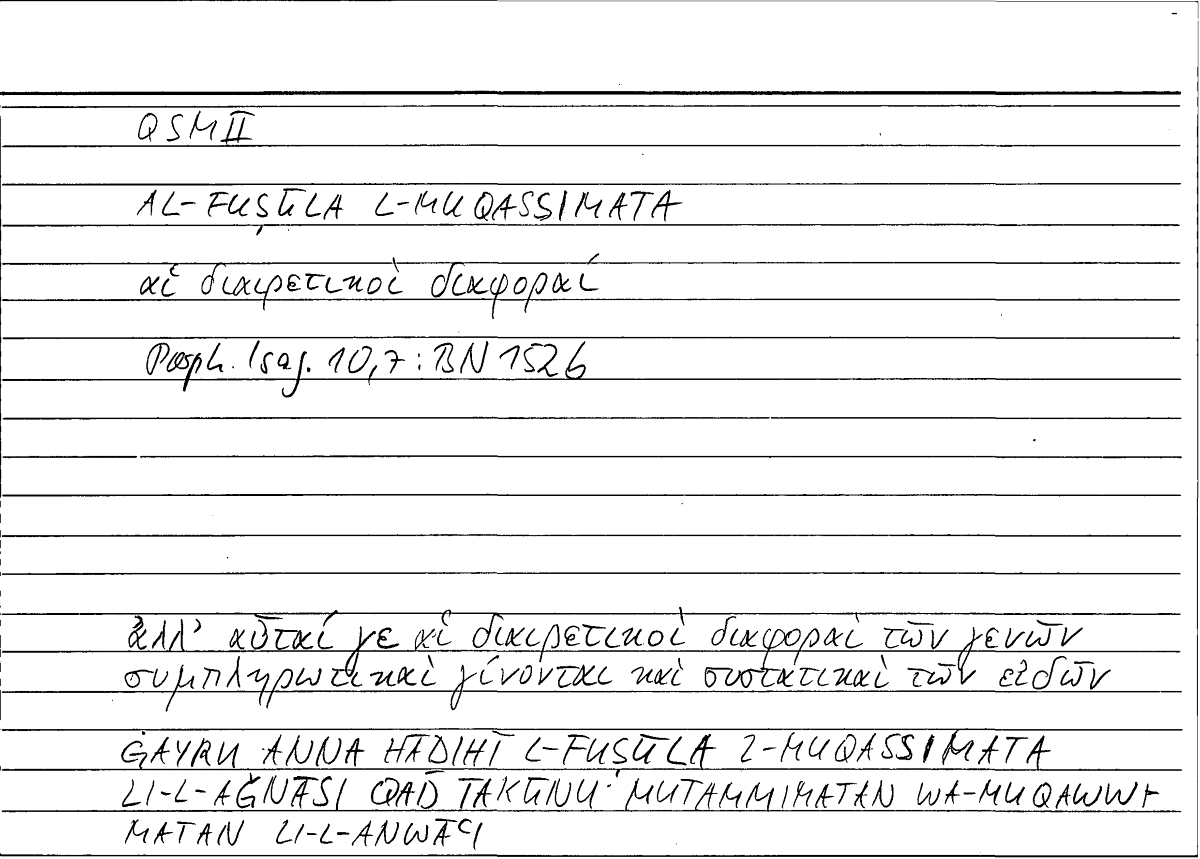 QSM II
AL-FUṢŪLA L-MUQASSIMATA
αἱ διαιρετικοὶ διαφοραί
Porph. Isag. 10,7 : BN 152b
ἀλλ’ αὗταί γε αἱ διαιρετικοὶ διαφοραὶ τῶν γενῶν
συμπληρωτικαὶ γίνονται καὶ συστατικαὶ τῶν εἰδῶν
ĠAYRU ANNA HĀḎIHĪ L-FUṢŪLA L-MUQASSIMATA
LI-L-AǦNĀSI QAD TAKŪNU MUTAMMIMATAN WA-MUQAWWI-
MATAN LI-L-ANWĀʿI